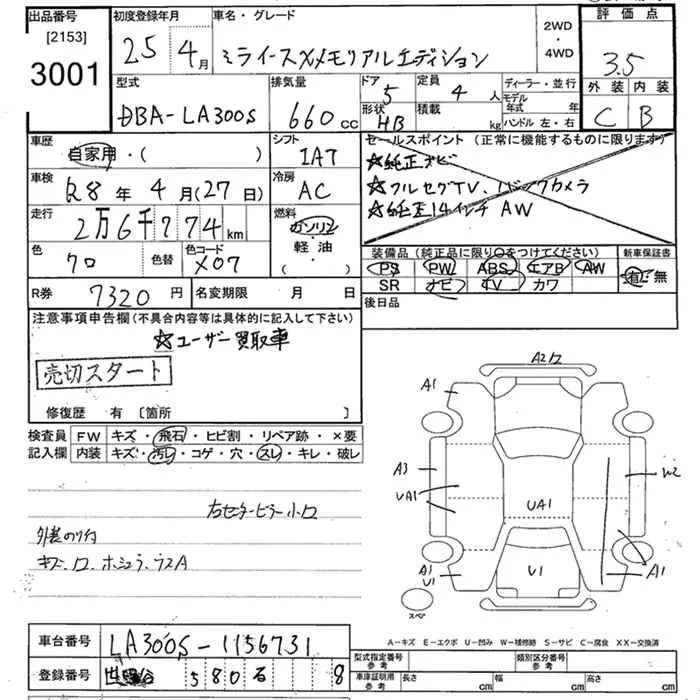 出品番号 初度登録年月 車名・グレード 評価点
[2153]
3001
25 4月 ミライースXメモリアルエディション 2WD・4WD 3.5
型式 排気量 ドア 定員 ディーラー・並行 外装 内装
DBA-LA300S 660cc 5 4人 モデル年式 年 C B
形状 積載 ハンドル 左・右
HB kg
車歴 シフト セールスポイント(正常に機能するものに限ります)
自家用・( ) IAT ☆純正ナビ
車検 冷房 ☆フルセグTV、バックカメラ
R8年4月(27日) AC ☆純正14インチAW
走行 燃料
2万6千774km ガソリン・軽油・( )
色 色替 色コード 装備品(純正品に限り○をつけてください) 新車保証書
クロ X07 PS PW ABS エアB AW 有・無
SR ナビ TV カワ
R券 7320円 名変期限 月 日 後日品
注意事項申告欄(不具合内容等は具体的に記入して下さい)
☆ユーザー買取車
売切スタート
修復歴 有 [箇所 ]
検査員記入欄 FW キズ・飛石・ヒビ割・リペア跡・×要
内装 キズ・汚レ・コゲ・穴・スレ・キレ・破レ
A1
A3
UA1
UA1
W2
A1
U1
U1
A1
スペア
A-キズ E-エクボ U-凹み W-補修跡 S-サビ C-腐食 XX-交換済
車台番号 LA300S-1156731
登録番号 580 る 8
型式指定番号 参考 類別区分番号 参考
車庫証明用 参考 長さ cm 幅 cm 高さ cm